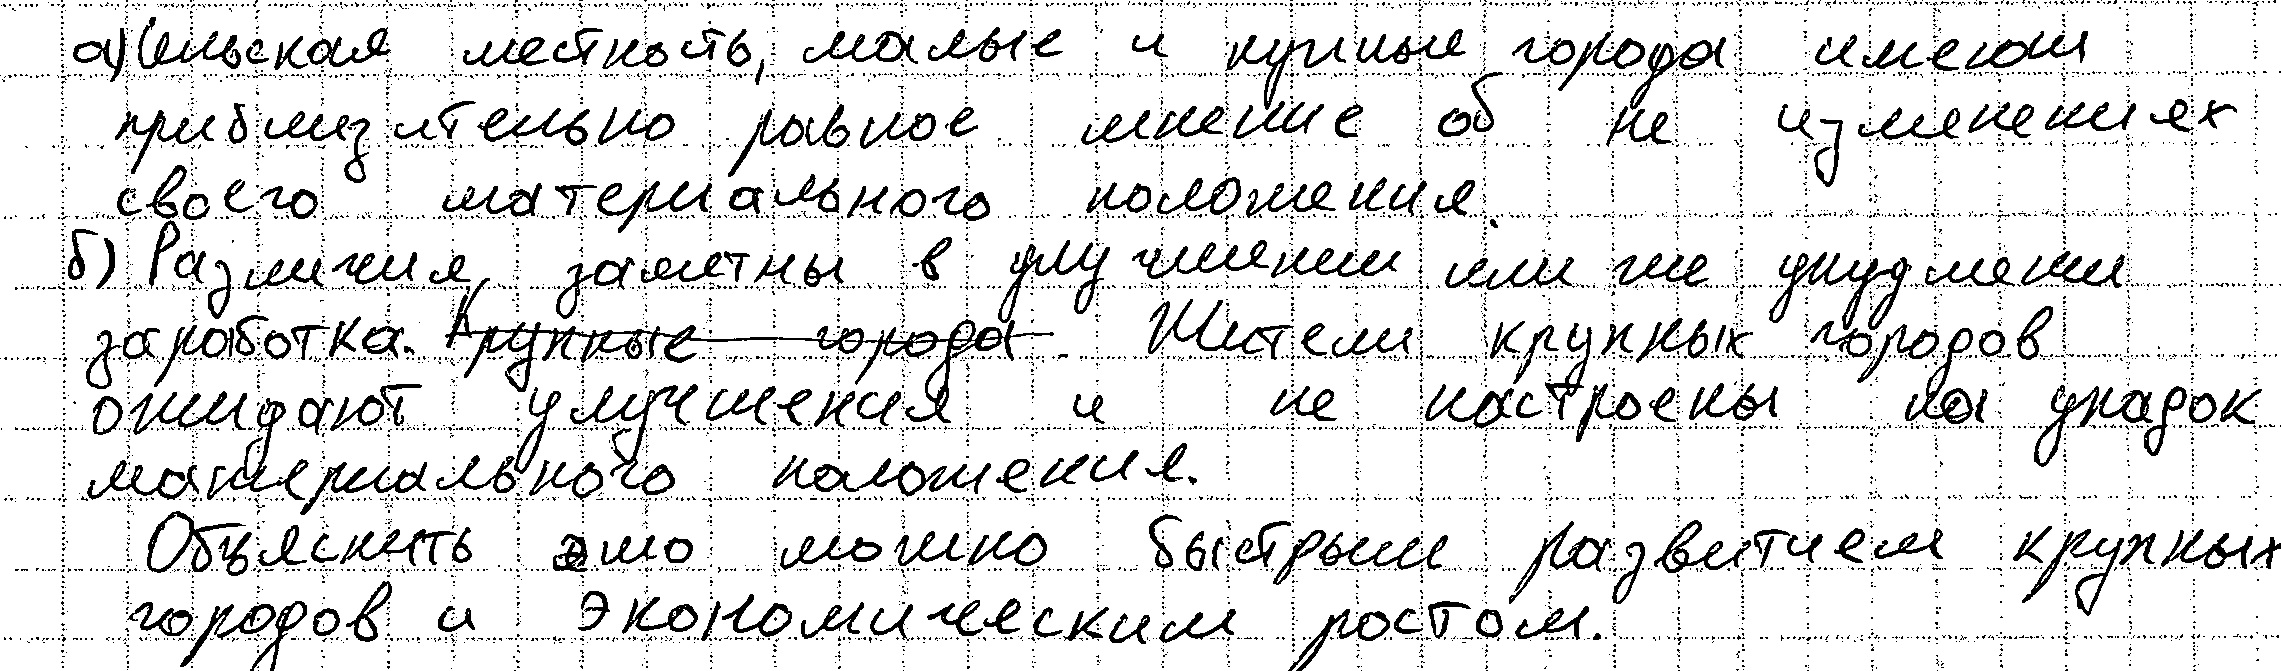 а) Сельская местность, малые и крупные города имеют
приблизительно равное мнение об не изменениях
своего материального положения.
б) Различия, заметны в улучшении или же ухудшении
заработка. Крупные города Жители крупных городов
ожидают улучшения и не настроены на упадок
материального положения.
Объяснить это можно быстрым развитием крупных
городов и экономическим ростом.